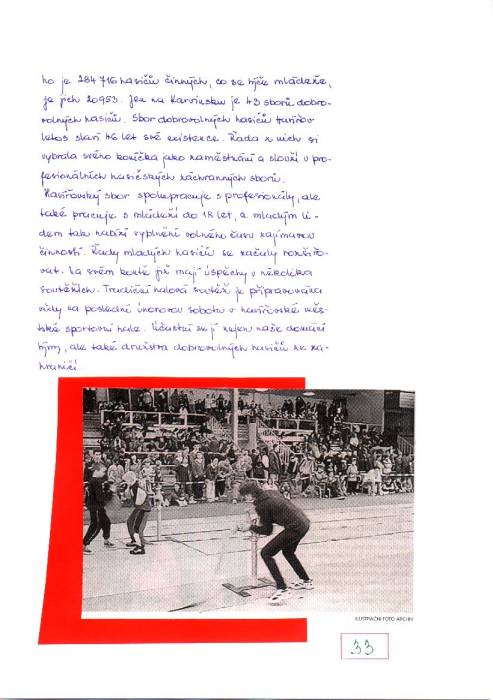 ho je 284 716 hasičů činných, co se týče mládeže,
je jich 20953. Jen na Karvinsku je 43 sborů dobro-
volných hasičů. Sbor dobrovolných hasičů Havířov
letos slaví 46 let své existence. Řada z nich si
vybrala svého koníčka jako zaměstnání a slouží v pro-
fesionálních hasičských záchranných sborů.
Havířovský sbor spolupracuje s profesionály, ale
také pracuje s mládeží do 18 let, a mladým li-
dem tak nabízí vyplnění volného času zajímavou
činností. Řady mladých hasičů se začaly rozšiřo-
vat. Na svém kontě již mají úspěchy v několika
soutěžích. Tradiční halová soutěž je připravována
vždy na poslední únorovou sobotu v havířovské měs-
tské sportovní hale. Účastní se jí nejen naše domácí
týmy, ale také družstva dobrovolných hasičů ze za-
hraničí.
ILUSTRAČNÍ FOTO ARCHIV
33